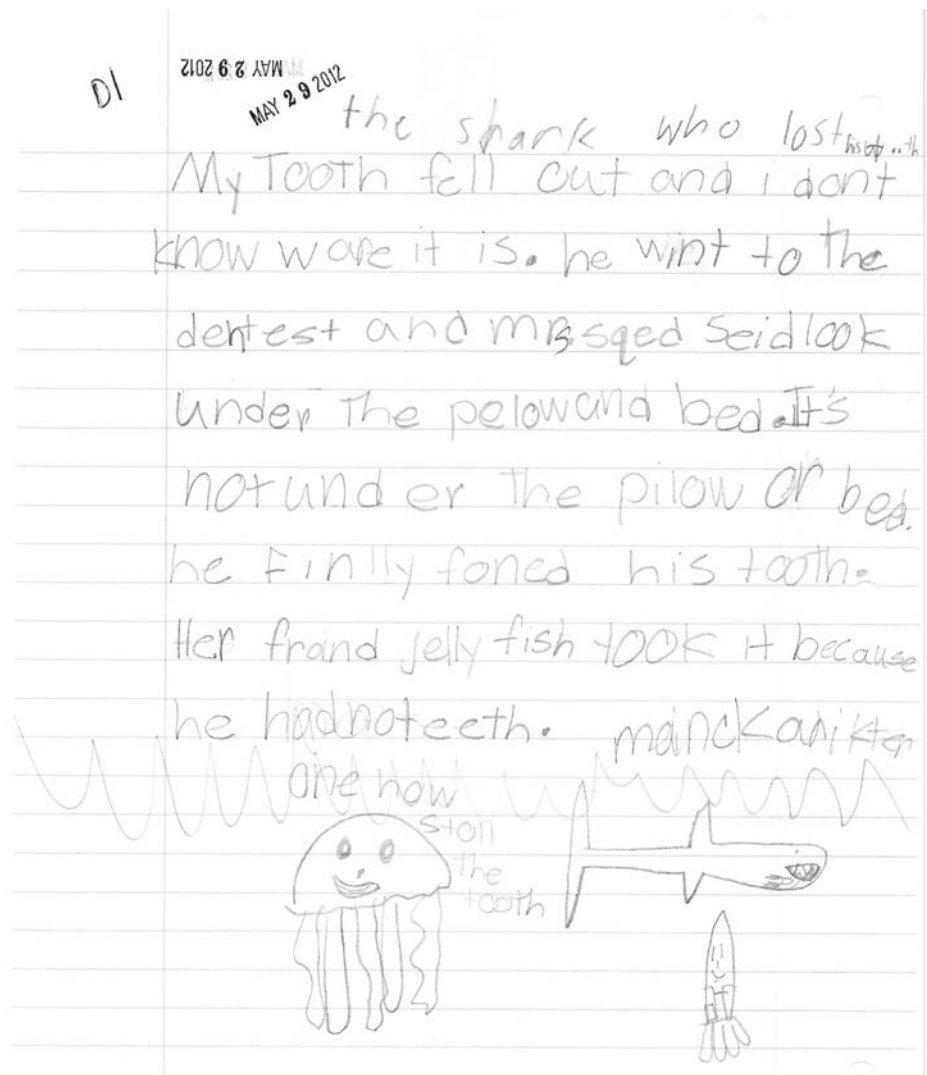 D1
MAY 29 2012
MAY 29 2012
the shark who lost his
My Tooth fell out and i dont
know ware it is. he wint to the
dentest and mrs sqed Seid look
under The pelow and bed. It's
not und er The pilow or bed.
he Finlly foned his tooth.
Her frand Jelly fish took it because
he had no teeth. mainckarikter
one how
stoll
The
tooth